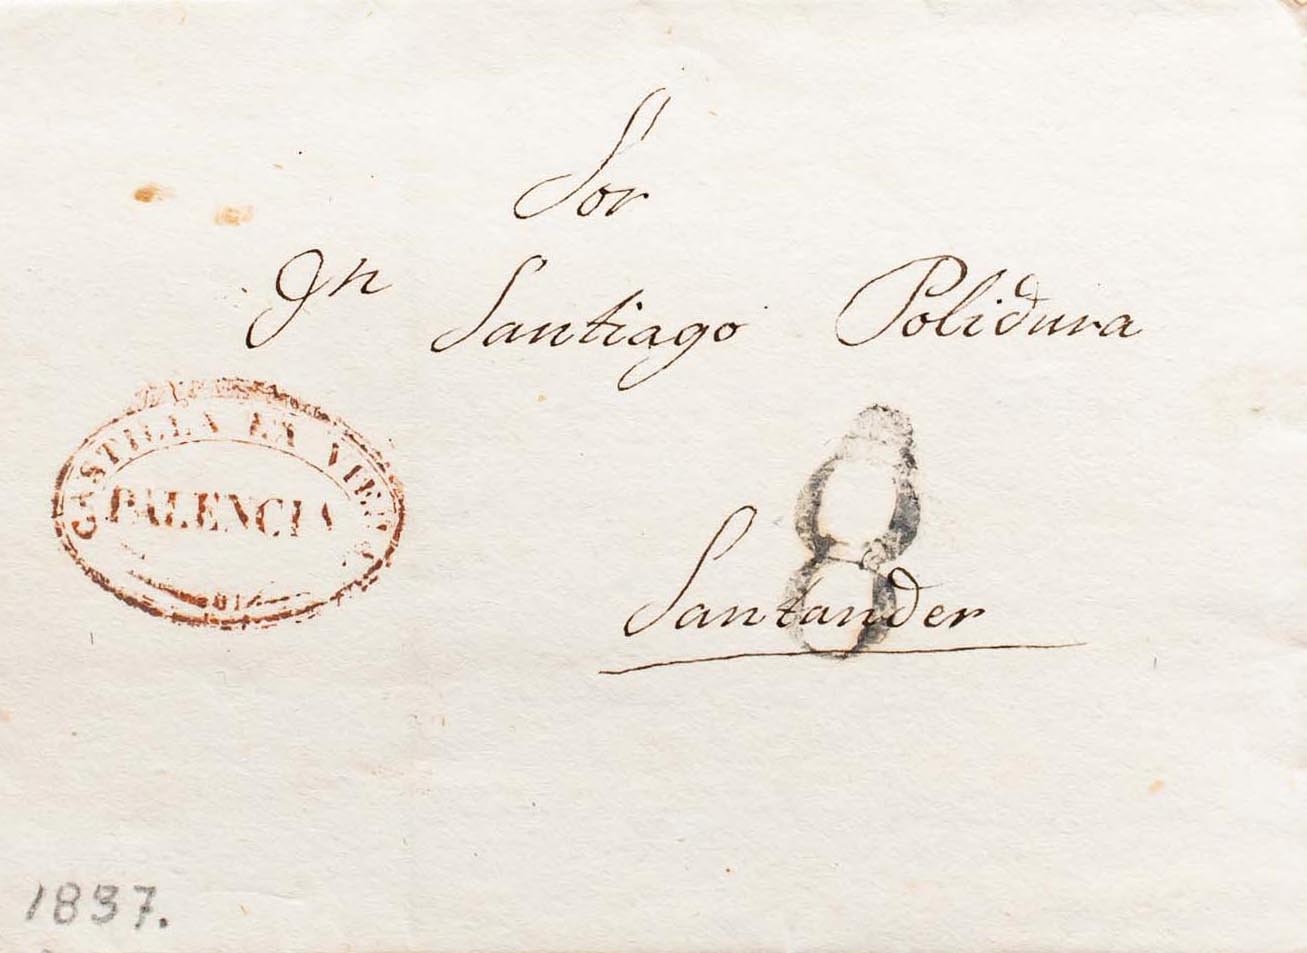 Sor
Dn Santiago Polidura
CASTILLA LA VIEJA
PALENCIA
8
Santander
1837.